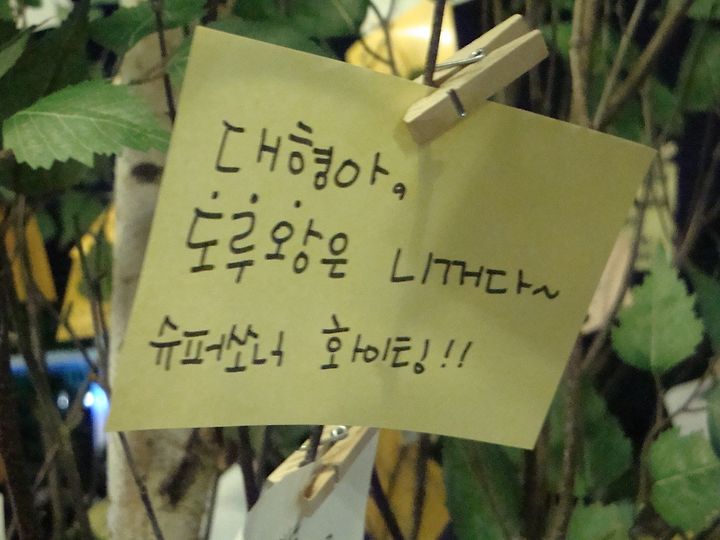 대형아,
도루왕은 니꺼다~
슈퍼쏘니 화이팅!!